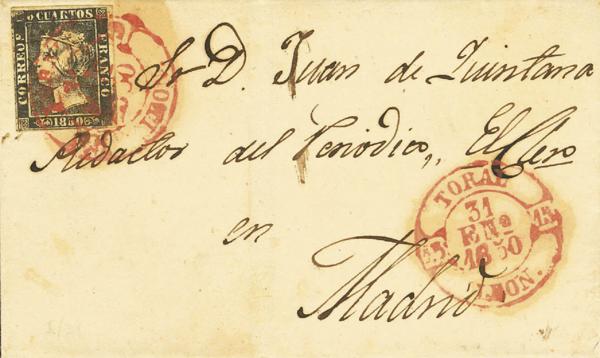 CORREOS 6 CUARTOS FRANCO 1850
Sr D. Juan de Quintana
Redactor del Periodico „ El Clero
en
Madrid
TORAL
31
ENº
1850
LEON.